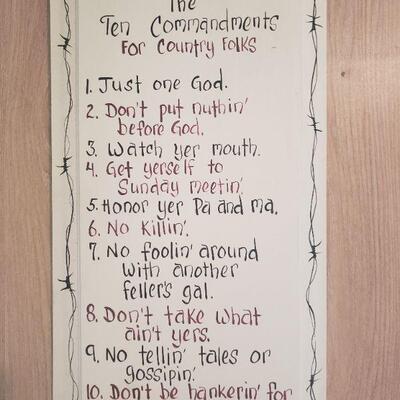 The
Ten Commandments
For Country Folks
1. Just one God.
2. Don't put nuthin'
before God.
3. Watch yer mouth.
4. Get yerself to
Sunday meetin'.
5. Honor yer Pa and Ma.
6. No Killin'.
7. No foolin' around
with another
feller's gal.
8. Don't take what
ain't yers.
9. No tellin' tales or
gossipin'.
10. Don't be hankerin' for